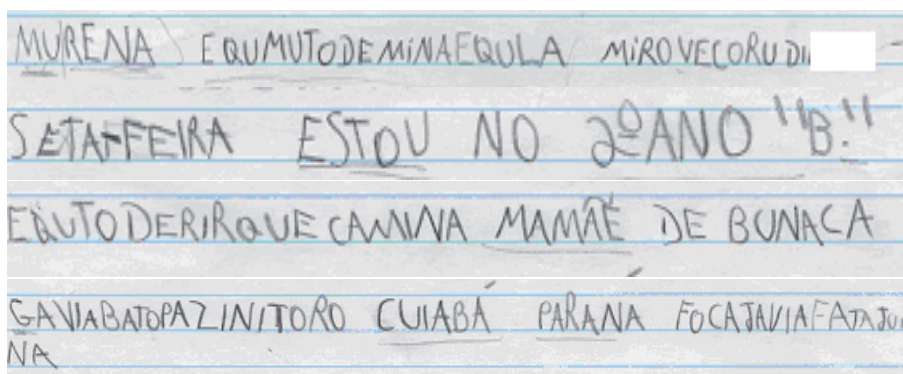 MURENA EQUMUTODEMINAEQULA MIROVECORUDI
SETA-FEIRA ESTOU NO 2º ANO "B."
EQUTODERIRQUECAMINA MAMÃE DE BUNACA
GAVIABATOPAZINITORO CUIABÁ PARANÁ FOCAJAVIAFATAJU
NA